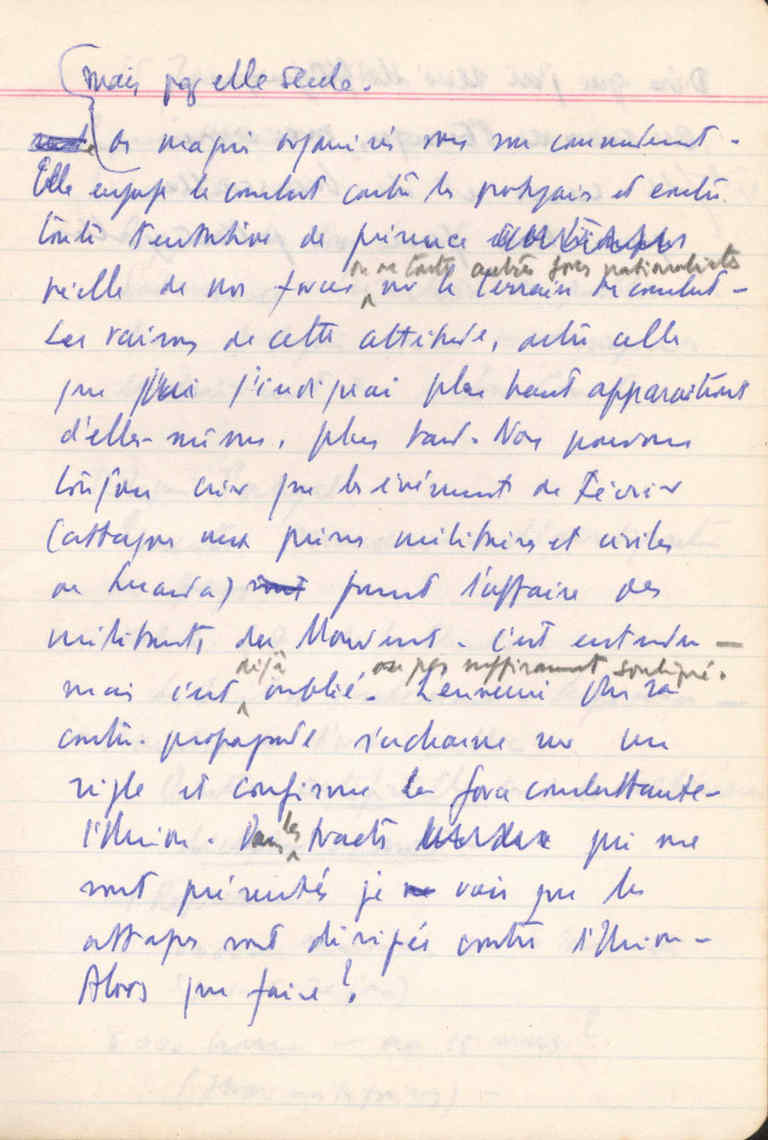 mais par elle seule.
de maquis organisés sous son commandement.
Elle engage le combat contre les portugais et contre
toute tentative de présence
ou de toute autre force nationaliste
réelle de nos forces sur le terrain de combat.
Les raisons de cette attitude, outre celle
que j'indiquai plus haut apparaîtront
d'elles-mêmes, plus tard. Nous pouvons
toujours crier que les événements de Février
(attaques aux prisons militaires et civiles
de Luanda) furent l'affaire des
militants du Mouvement. C'est entendu –
déjà ou pas suffisamment souligné.
mais c'est oublié. L'ennemi dans sa
contre-propagande s'acharne sur un
sigle et confirme la force combattante –
les
l'Union. Dans tracts qui me
sont présentés je vois que les
attaques sont dirigées contre l'Union –
Alors que faire ?